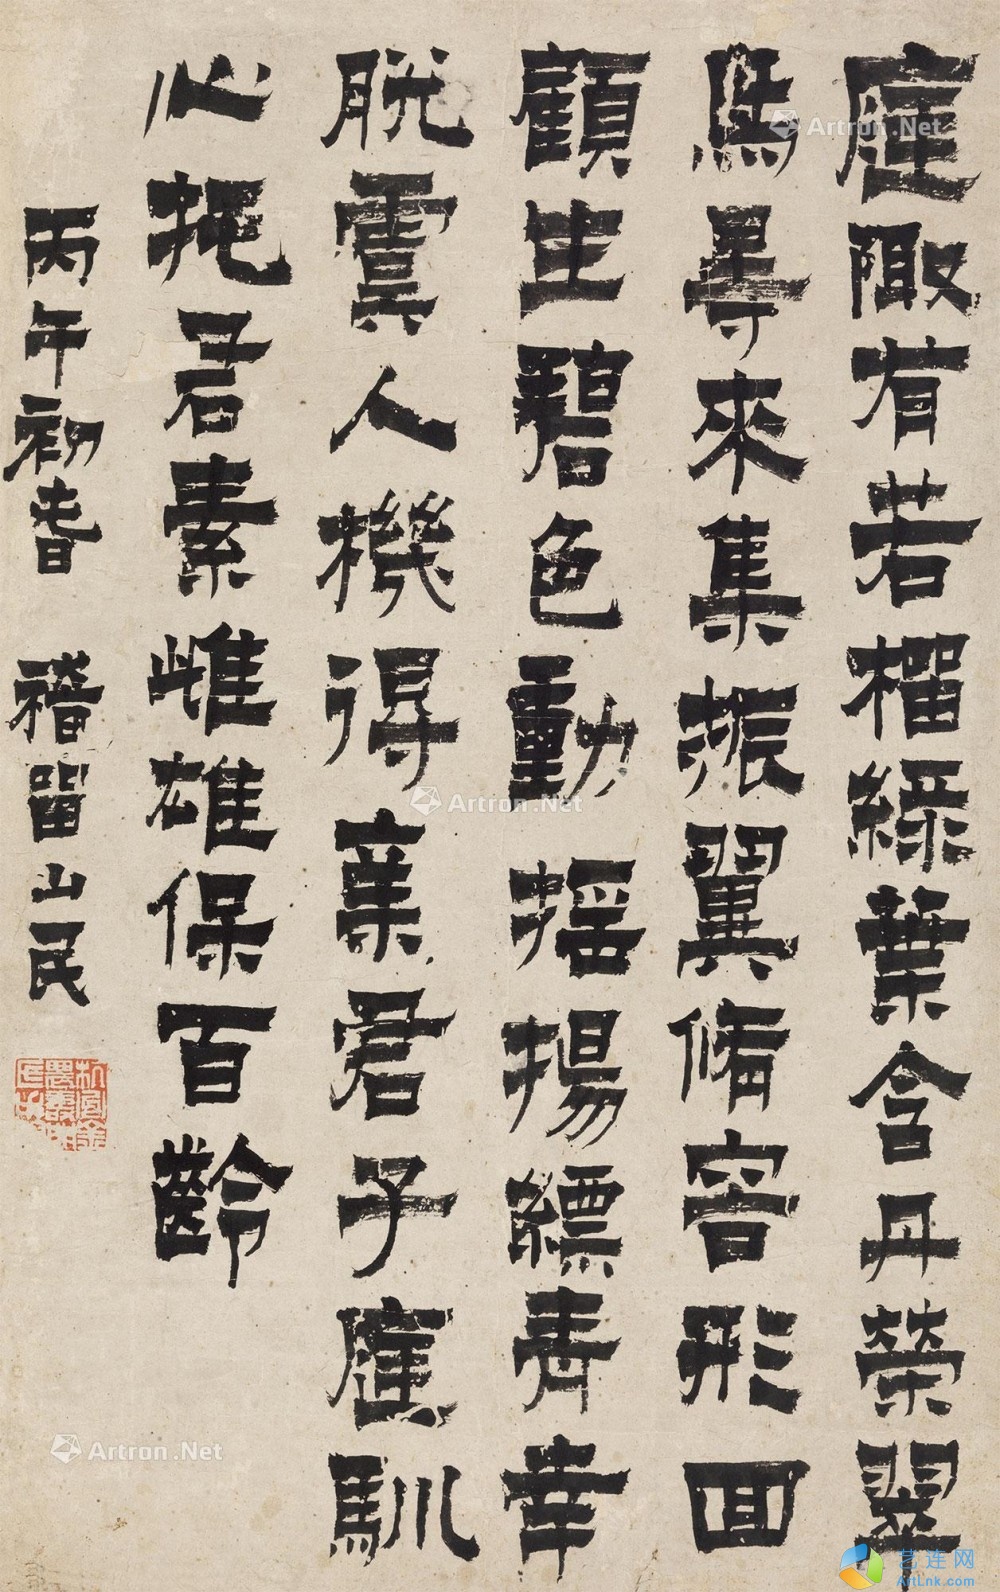 庭陬有若榴綠葉含丹榮翠
鳥時來集振翼脩容形回
顧生碧色動搖揚縹青幸
脫虞人機得亲君子庭馴
心托君素雌雄保百齡
丙午初春 稽留山民
Artron.Net
Artron.Net
Artron.Net
艺连网
ArtLnk.com